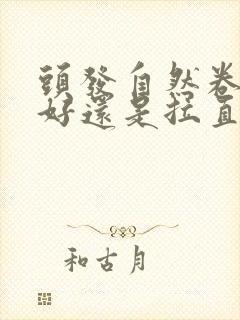 頭發自然卷
好還是拉直
和古月